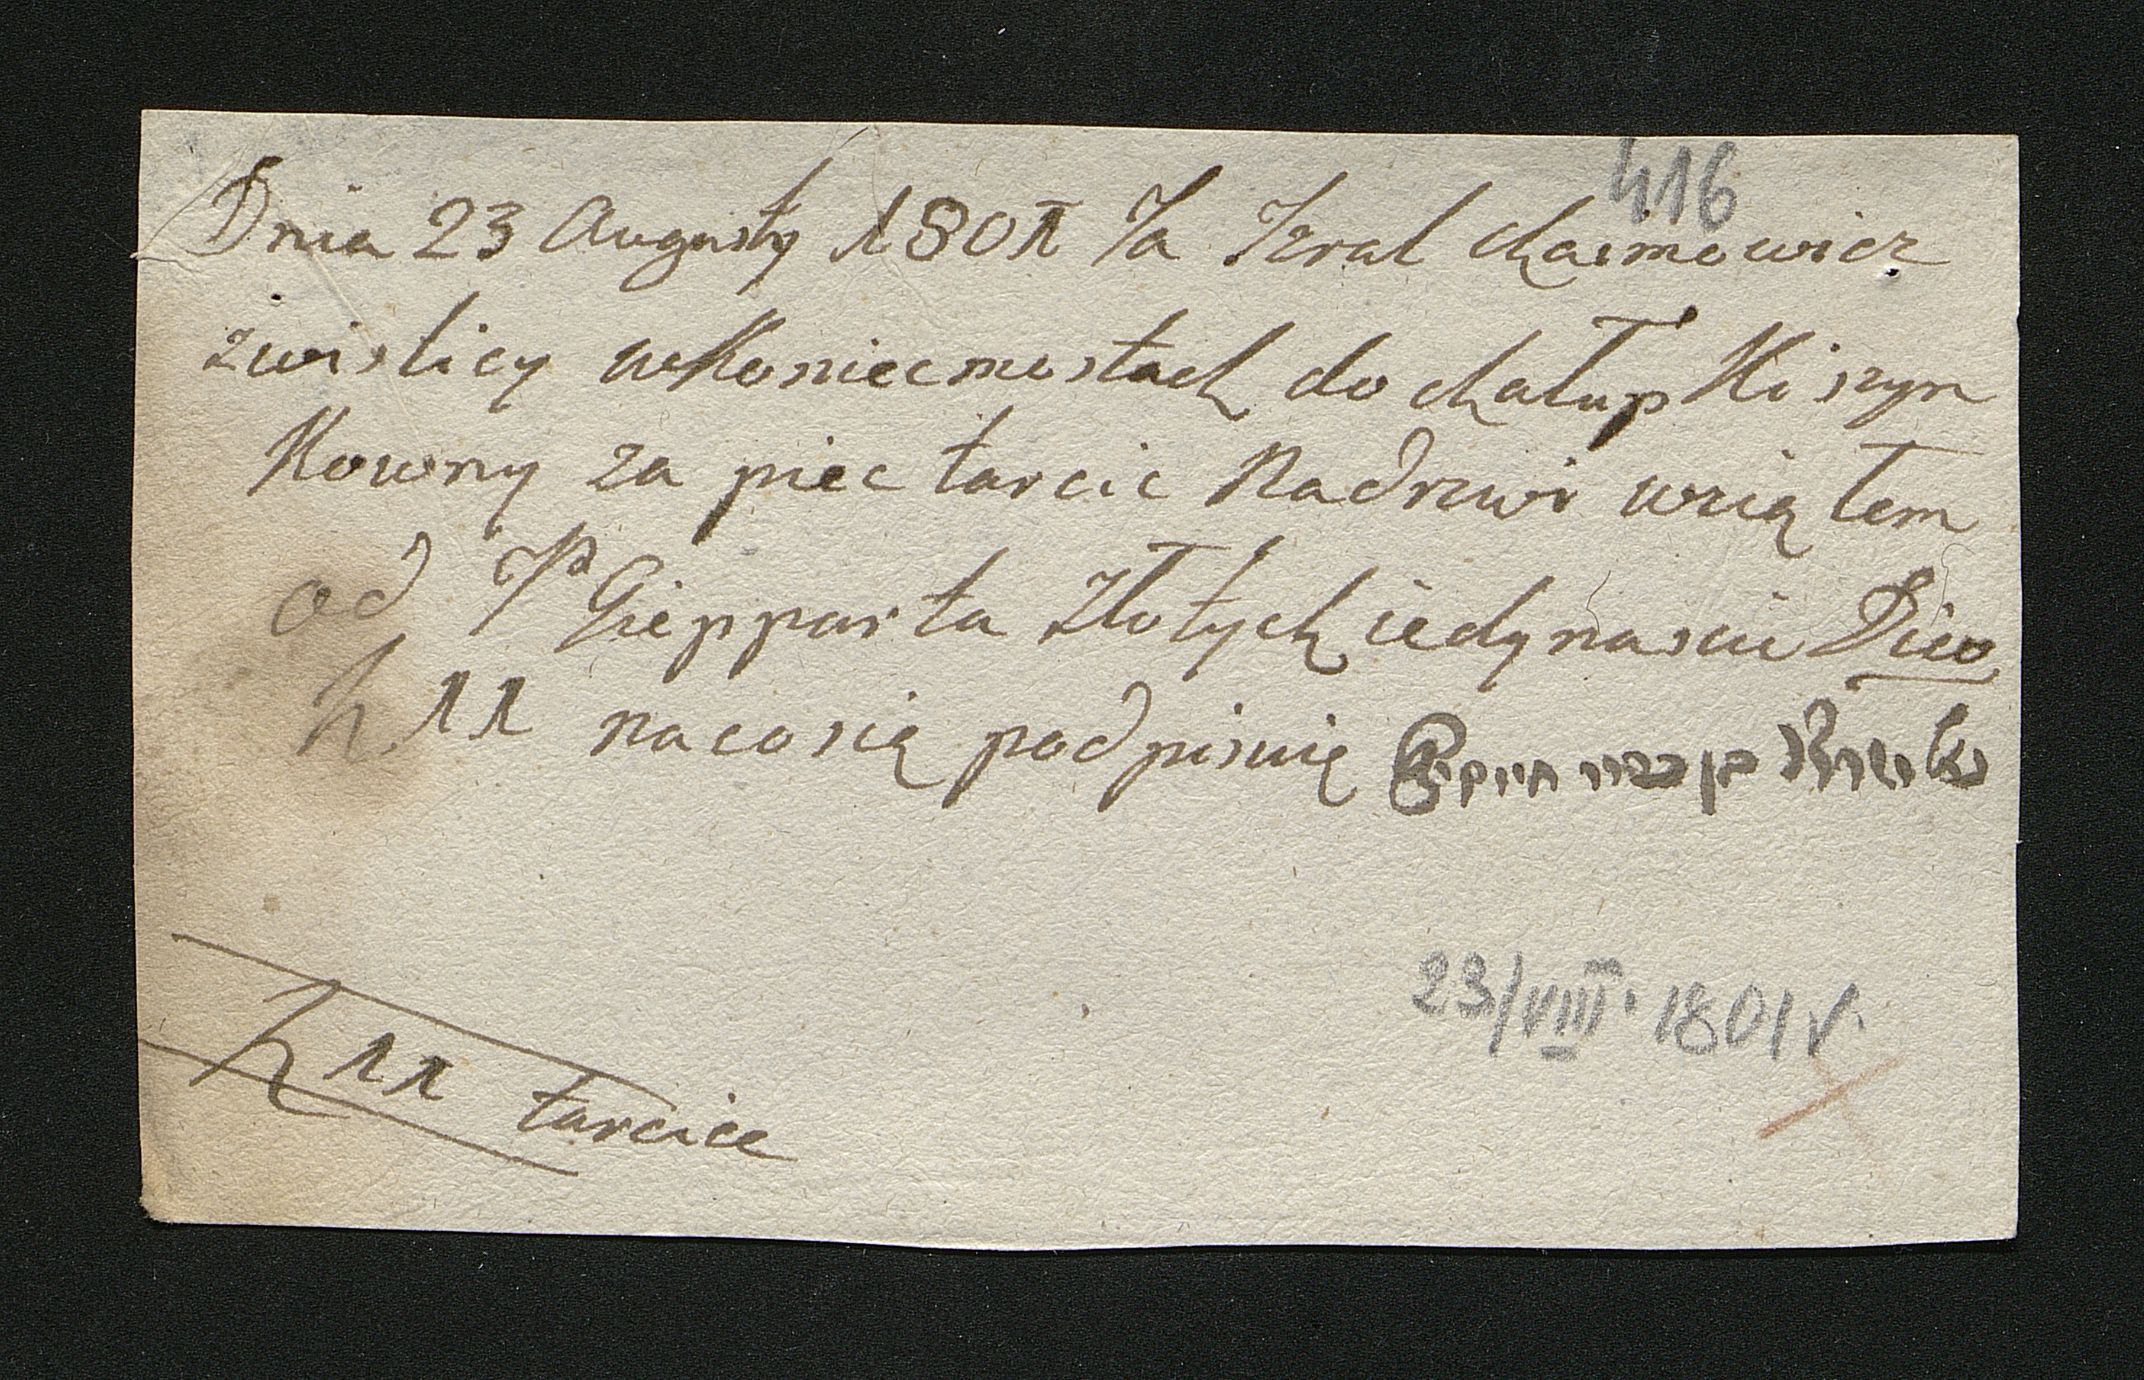 416
Dnia 23 Augusty 1801 Ja Izral Chaimowicz
zwislicy wKoniecmostach do chalup Ki szyn
Kowny za piec tarcic Nadrzwi wzią łem
od JPa Giepparta Złotych iedynascie Dico
zł 11 naco sią podpisuię
zł 11 tarcice
23/VIII. 1801 r.